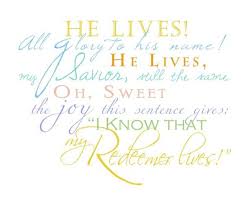 HE LIVES!
All glory to his name!
HE LIVES,
my Savior, still the same
OH, SWEET
the joy this sentence gives:
"I KNOW THAT
my Redeemer lives!"